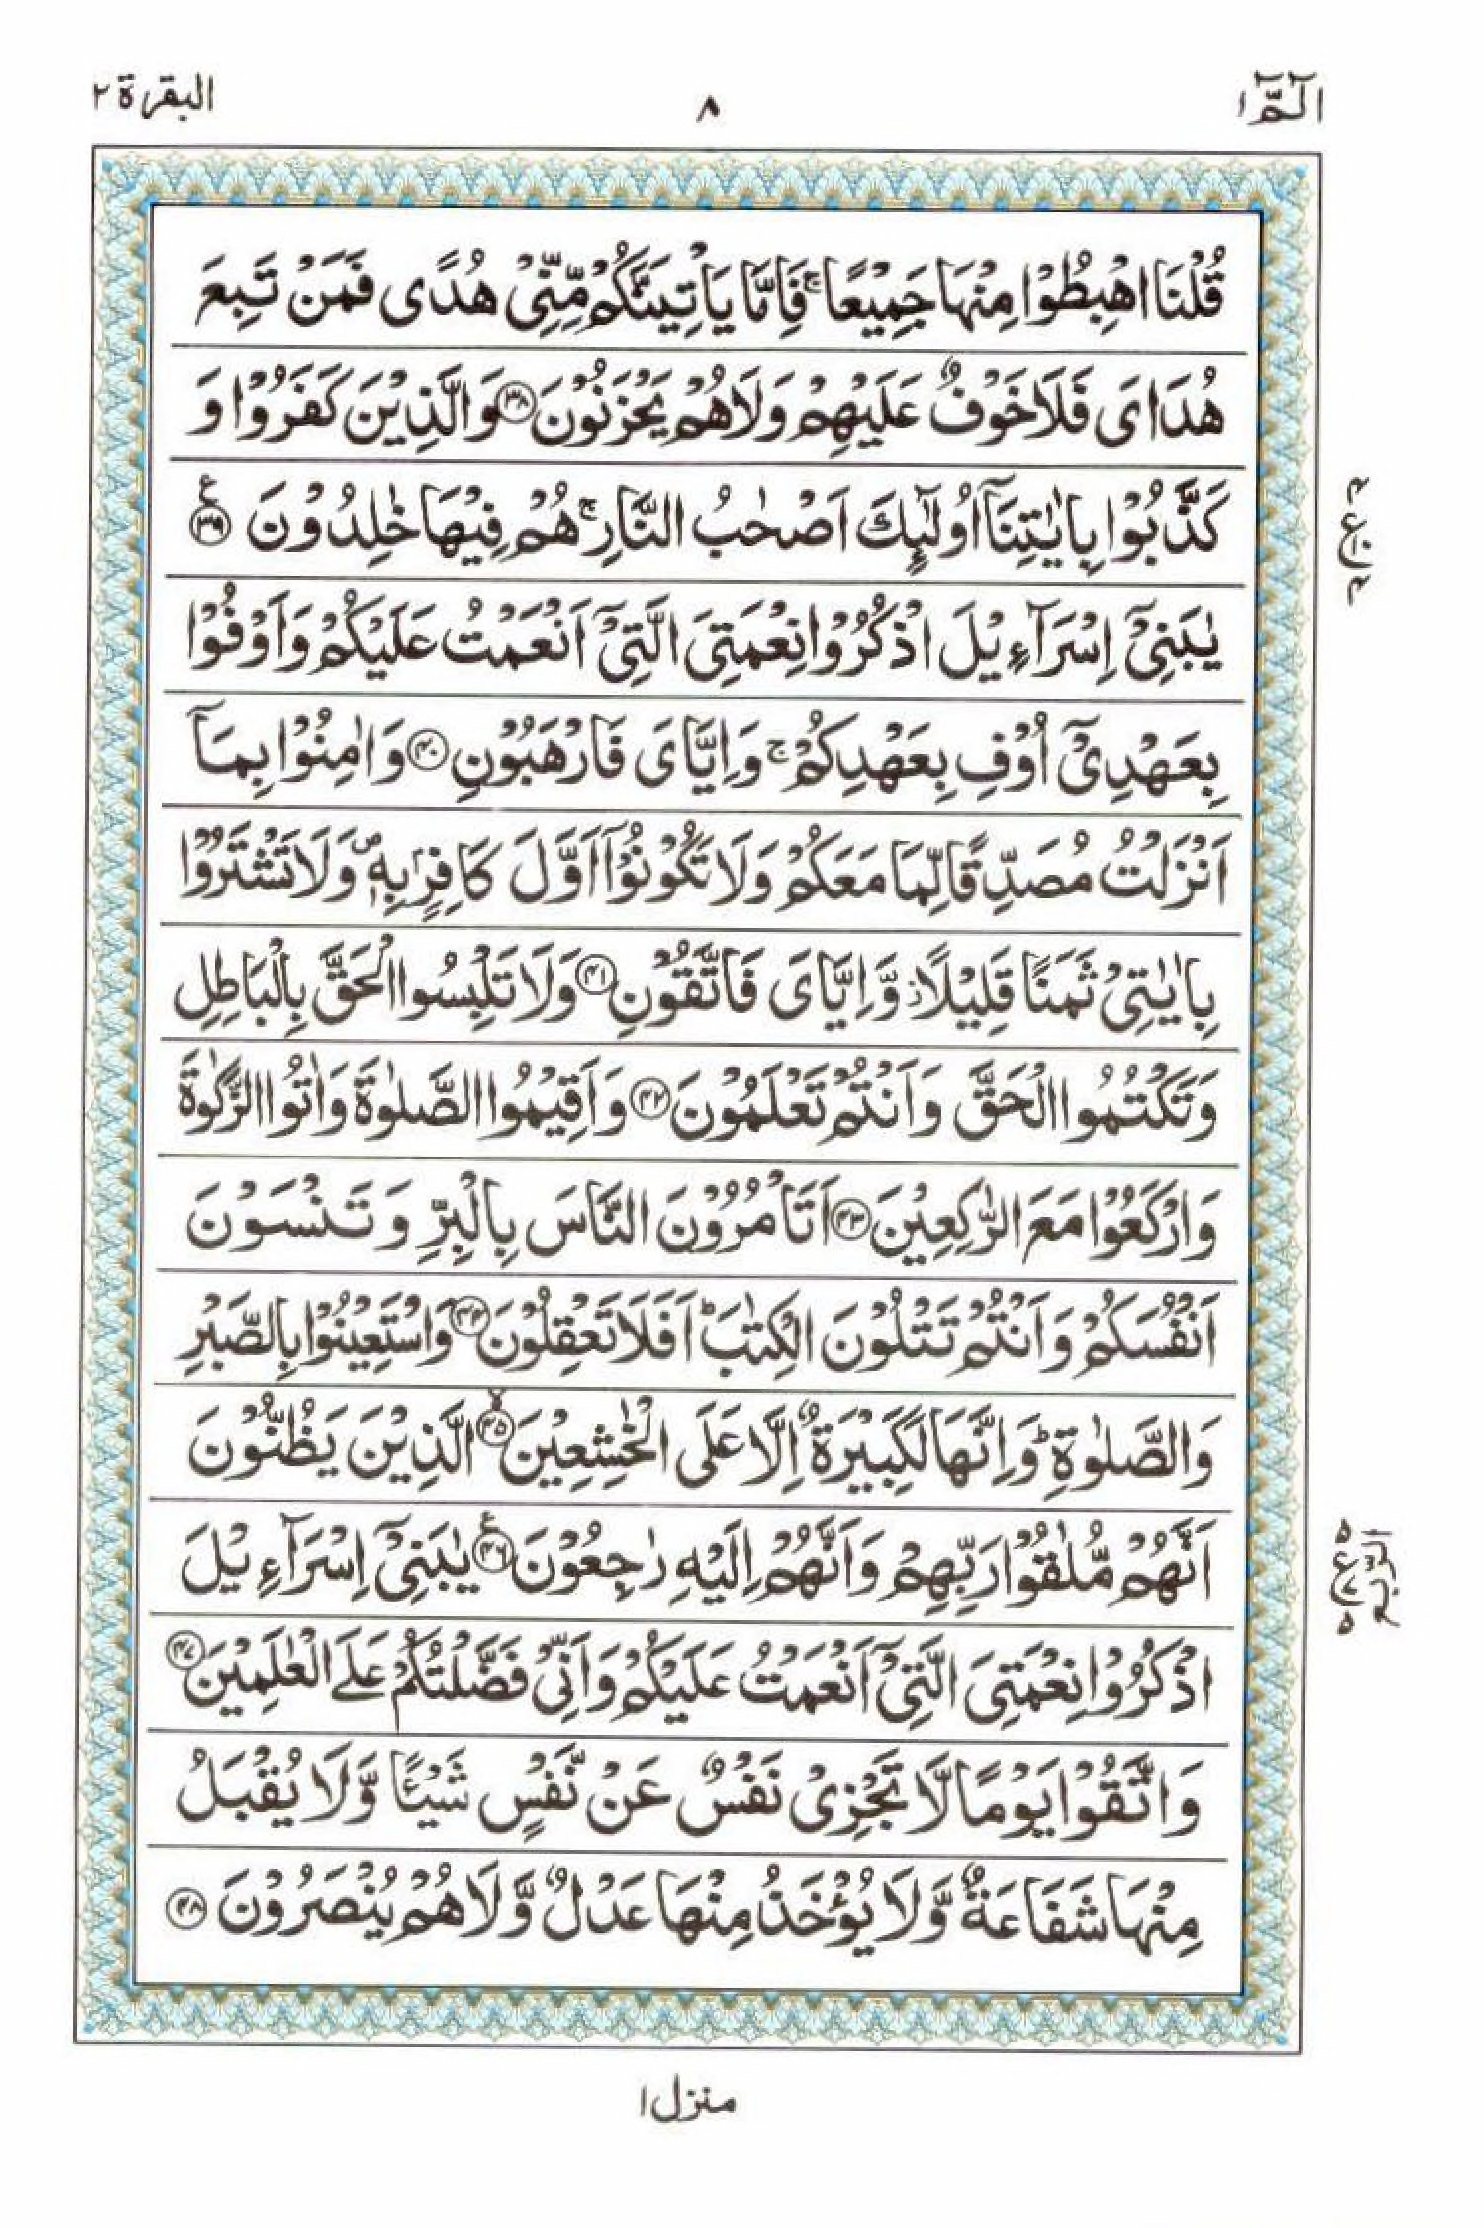 الٓمّٓ ١
٨
البقرة ٢
قُلْنَا اهْبِطُوْا مِنْهَا جَمِيْعًا ۚ فَاِمَّا يَاْتِيَنَّكُمْ مِّنِّىْ هُدًى فَمَنْ تَبِعَ
هُدَاىَ فَلَا خَوْفٌ عَلَيْهِمْ وَلَا هُمْ يَحْزَنُوْنَ ﴿٣٨﴾ وَالَّذِيْنَ كَفَرُوْا وَ
كَذَّبُوْا بِاٰيٰتِنَآ اُولٰٓئِكَ اَصْحٰبُ النَّارِ ۚ هُمْ فِيْهَا خٰلِدُوْنَ ﴿٣٩﴾ ع
يٰبَنِىْٓ اِسْرَآءِيْلَ اذْكُرُوْا نِعْمَتِىَ الَّتِىْٓ اَنْعَمْتُ عَلَيْكُمْ وَاَوْفُوْا
بِعَهْدِىْٓ اُوْفِ بِعَهْدِكُمْ ۚ وَاِيَّاىَ فَارْهَبُوْنِ ﴿٤٠﴾ وَاٰمِنُوْا بِمَآ
اَنْزَلْتُ مُصَدِّقًا لِّمَا مَعَكُمْ وَلَا تَكُوْنُوْٓا اَوَّلَ كَافِرٍۭ بِهٖ ۪ وَلَا تَشْتَرُوْا
بِاٰيٰتِىْ ثَمَنًا قَلِيْلًا ۡ وَّاِيَّاىَ فَاتَّقُوْنِ ﴿٤١﴾ وَلَا تَلْبِسُوا الْحَقَّ بِالْبَاطِلِ
وَتَكْتُمُوا الْحَقَّ وَاَنْتُمْ تَعْلَمُوْنَ ﴿٤٢﴾ وَاَقِيْمُوا الصَّلٰوةَ وَاٰتُوا الزَّكٰوةَ
وَارْكَعُوْا مَعَ الرّٰكِعِيْنَ ﴿٤٣﴾ اَتَاْمُرُوْنَ النَّاسَ بِالْبِرِّ وَتَنْسَوْنَ
اَنْفُسَكُمْ وَاَنْتُمْ تَتْلُوْنَ الْكِتٰبَ ؕ اَفَلَا تَعْقِلُوْنَ ﴿٤٤﴾ وَاسْتَعِيْنُوْا بِالصَّبْرِ
وَالصَّلٰوةِ ؕ وَاِنَّهَا لَكَبِيْرَةٌ اِلَّا عَلَى الْخٰشِعِيْنَ ﴿٤٥﴾ الَّذِيْنَ يَظُنُّوْنَ
اَنَّهُمْ مُّلٰقُوْا رَبِّهِمْ وَاَنَّهُمْ اِلَيْهِ رٰجِعُوْنَ ﴿٤٦﴾ ع يٰبَنِىْٓ اِسْرَآءِيْلَ
اذْكُرُوْا نِعْمَتِىَ الَّتِىْٓ اَنْعَمْتُ عَلَيْكُمْ وَاَنِّىْ فَضَّلْتُكُمْ عَلَى الْعٰلَمِيْنَ ﴿٤٧﴾
وَاتَّقُوْا يَوْمًا لَّا تَجْزِىْ نَفْسٌ عَنْ نَّفْسٍ شَيْـًٔا وَّلَا يُقْبَلُ
مِنْهَا شَفَاعَةٌ وَّلَا يُؤْخَذُ مِنْهَا عَدْلٌ وَّلَا هُمْ يُنْصَرُوْنَ ﴿٤٨﴾
منزل ١